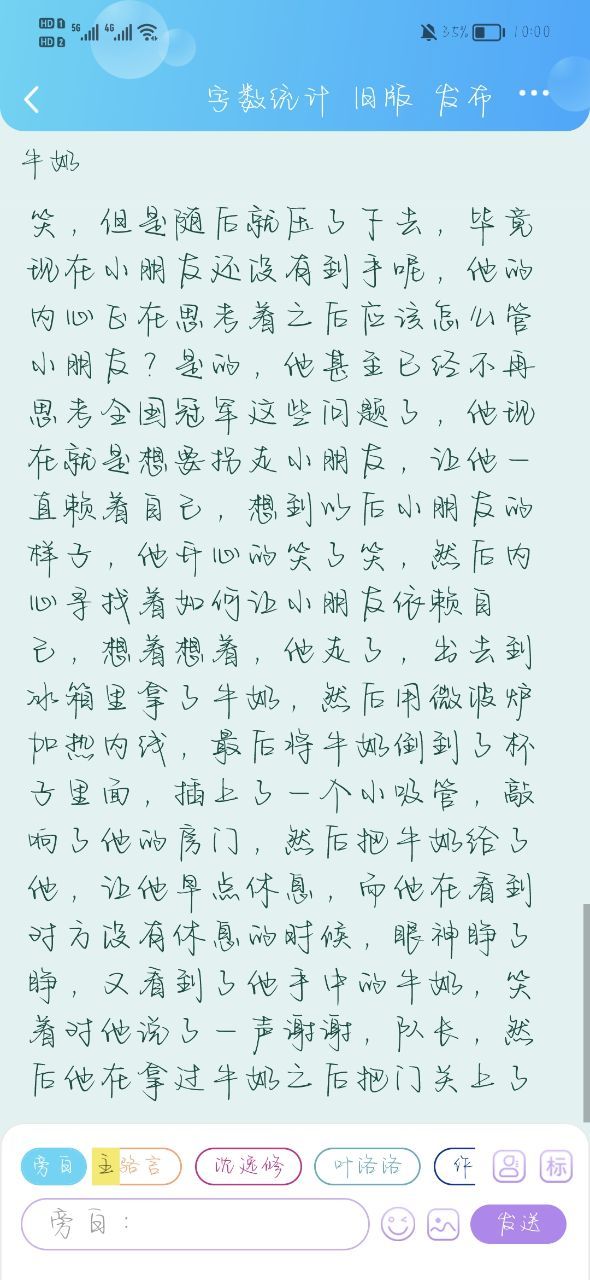 HD 1 5G 4G 35% 10:00
HD 2
字数统计 旧版 发布
牛奶
笑，但是随后就压了下去，毕竟
现在小朋友还没有到手呢，他的
内心正在思考着之后应该怎么管
小朋友？是的，他甚至已经不再
思考全国冠军这些问题了，他现
在就是想要拐走小朋友，让他一
直赖着自己，想到以后小朋友的
样子，他开心的笑了笑，然后内
心寻找着如何让小朋友依赖自
己，想着想着，他走了，出去到
冰箱里拿了牛奶，然后用微波炉
加热内线，最后将牛奶倒到了杯
子里面，插上了一个小吸管，敲
响了他的房门，然后把牛奶给了
他，让他早点休息，而他在看到
对方没有休息的时候，眼神睁了
睁，又看到了他手中的牛奶，笑
着对他说了一声谢谢，队长，然
后他在拿过牛奶之后把门关上了
旁白 主 骆言 沈逸修 叶洛洛 作 标
旁白： 发送